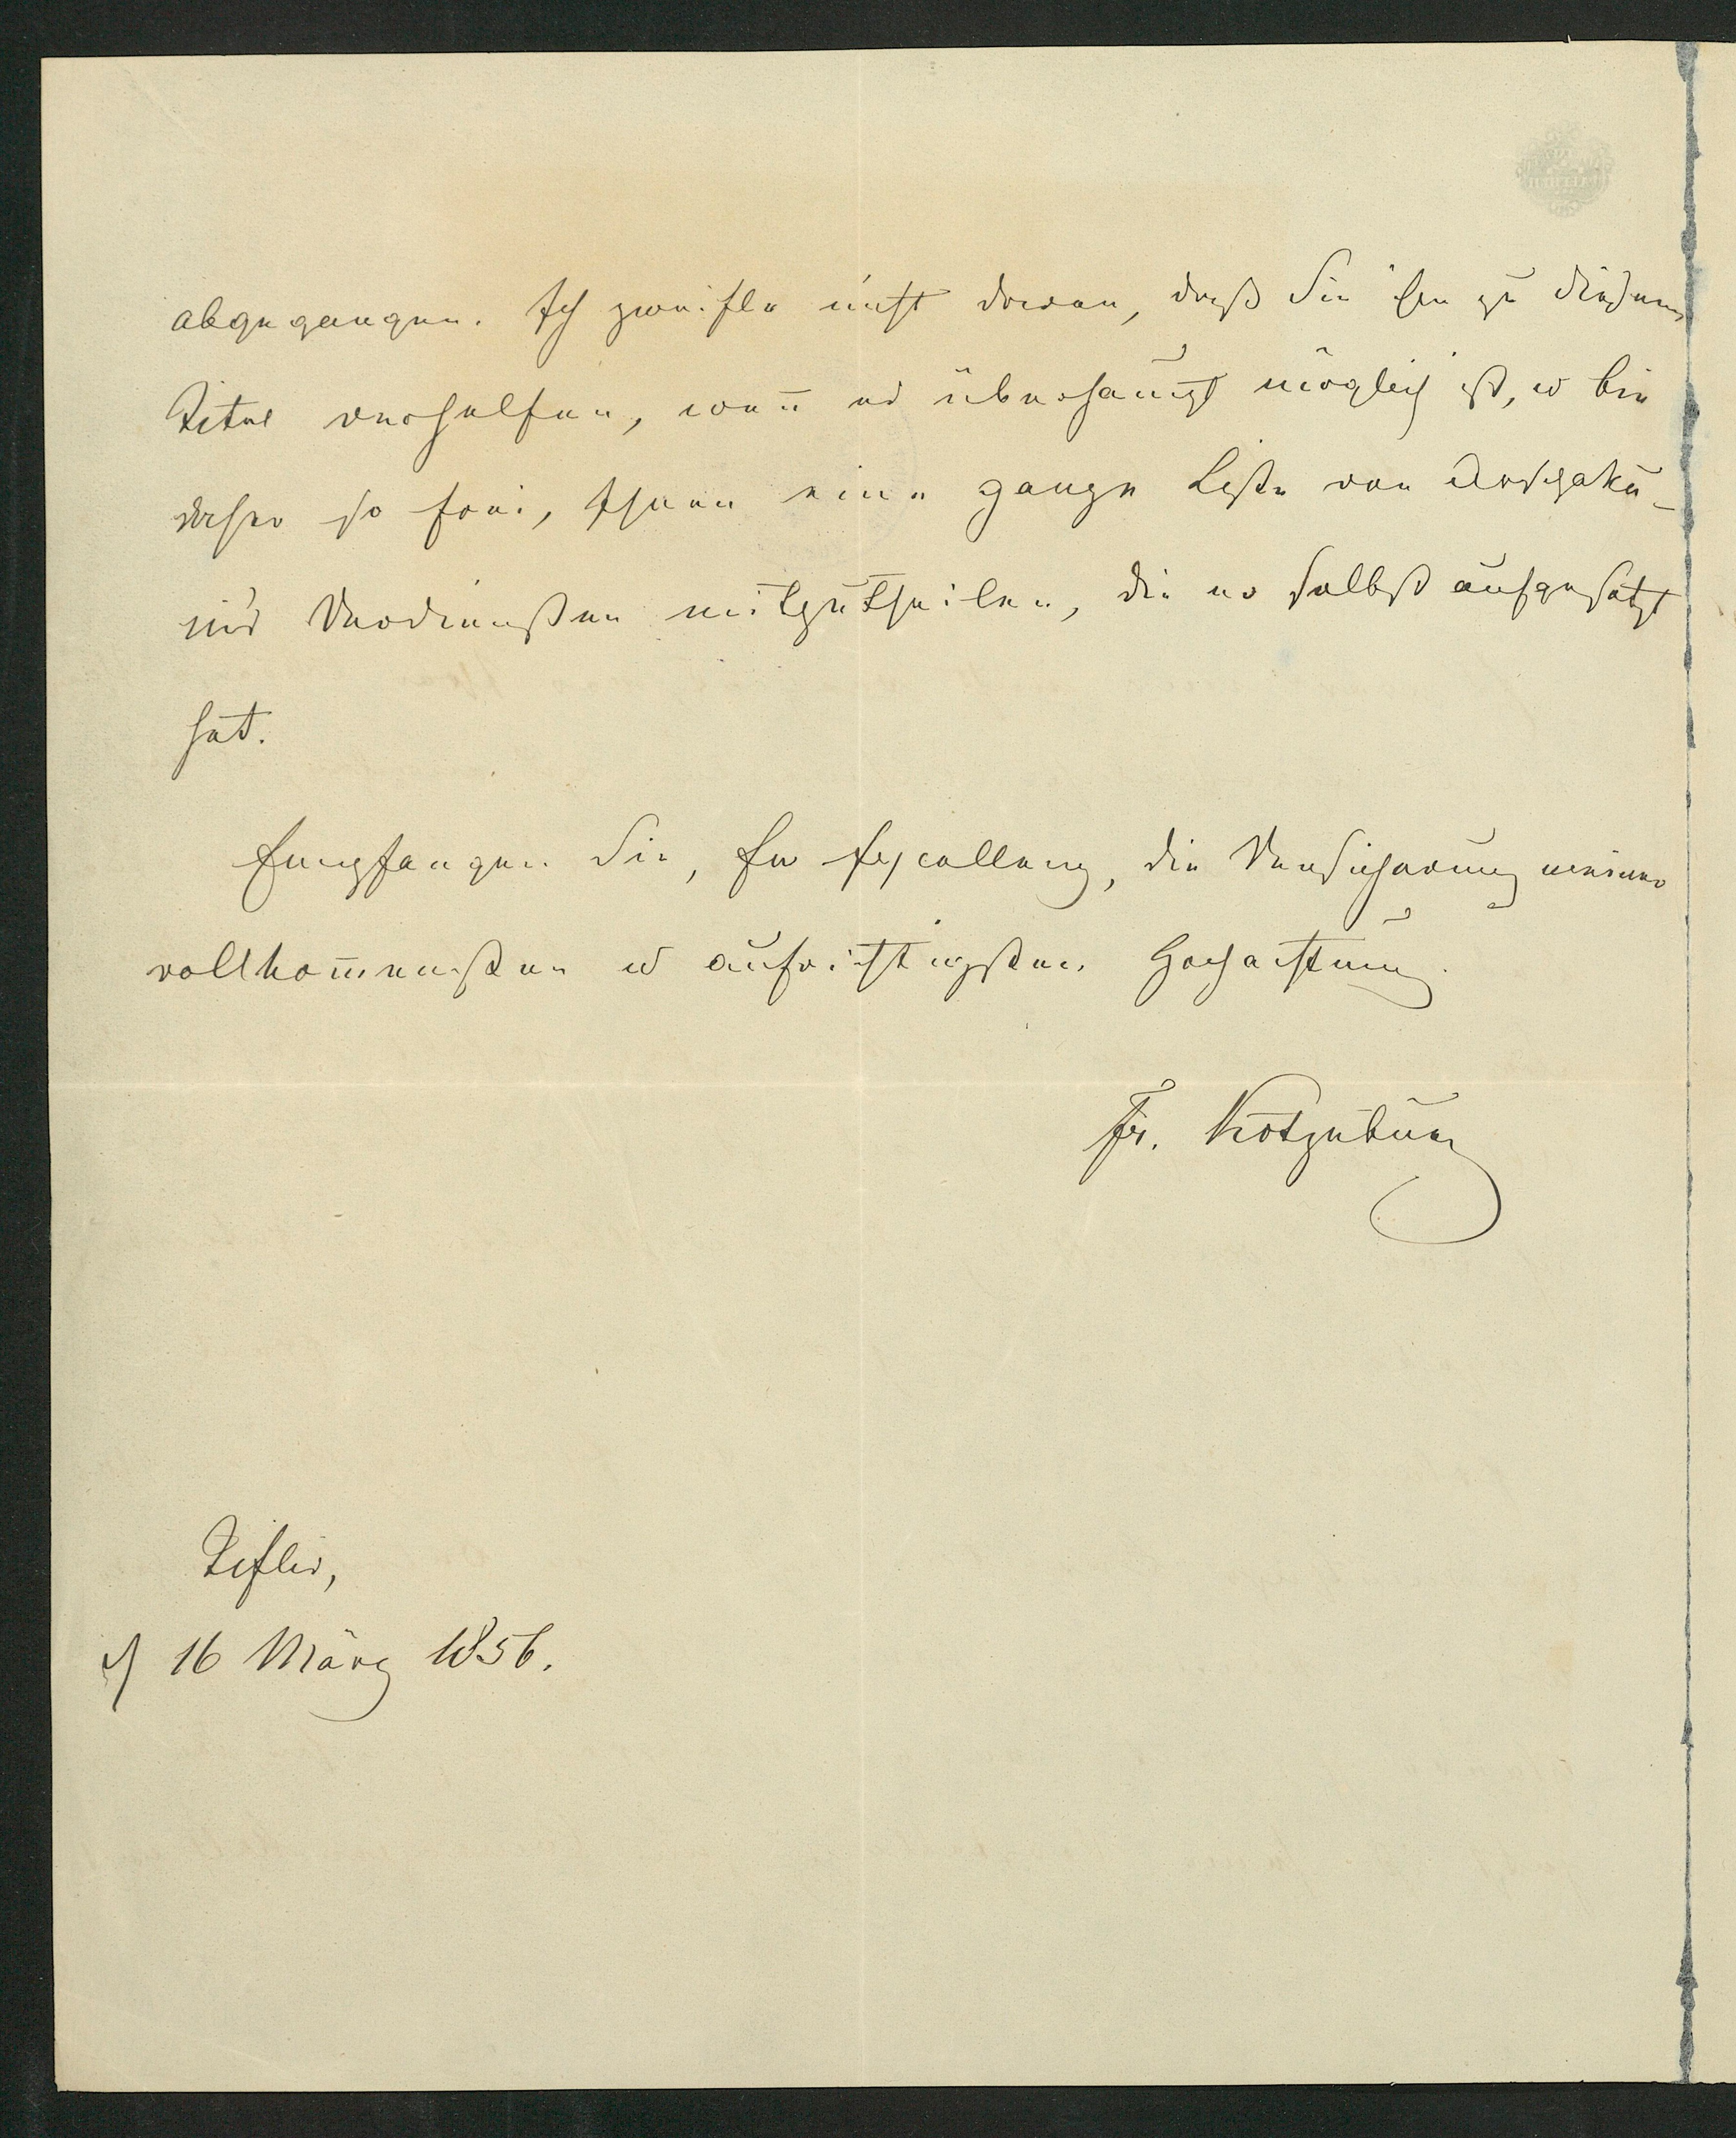 abgegangen. Ich zweifle nicht daran, daß Sie ihm zu diesem
Titel verhelfen, wenn̄ es überhaupt möglich ist, u bin
daher so frei, Ihnen eine ganze Liste von
Verdiensten mitzutheilen, die er selbst aufgesetzt
hat.
Empfangen Sie, Ew Excellenz, die Versicherung meiner
vollkom̄ensten u aufrichtigsten Hochachtung.
Fr. Kotzebue
Tiflis,
16 März 1856.